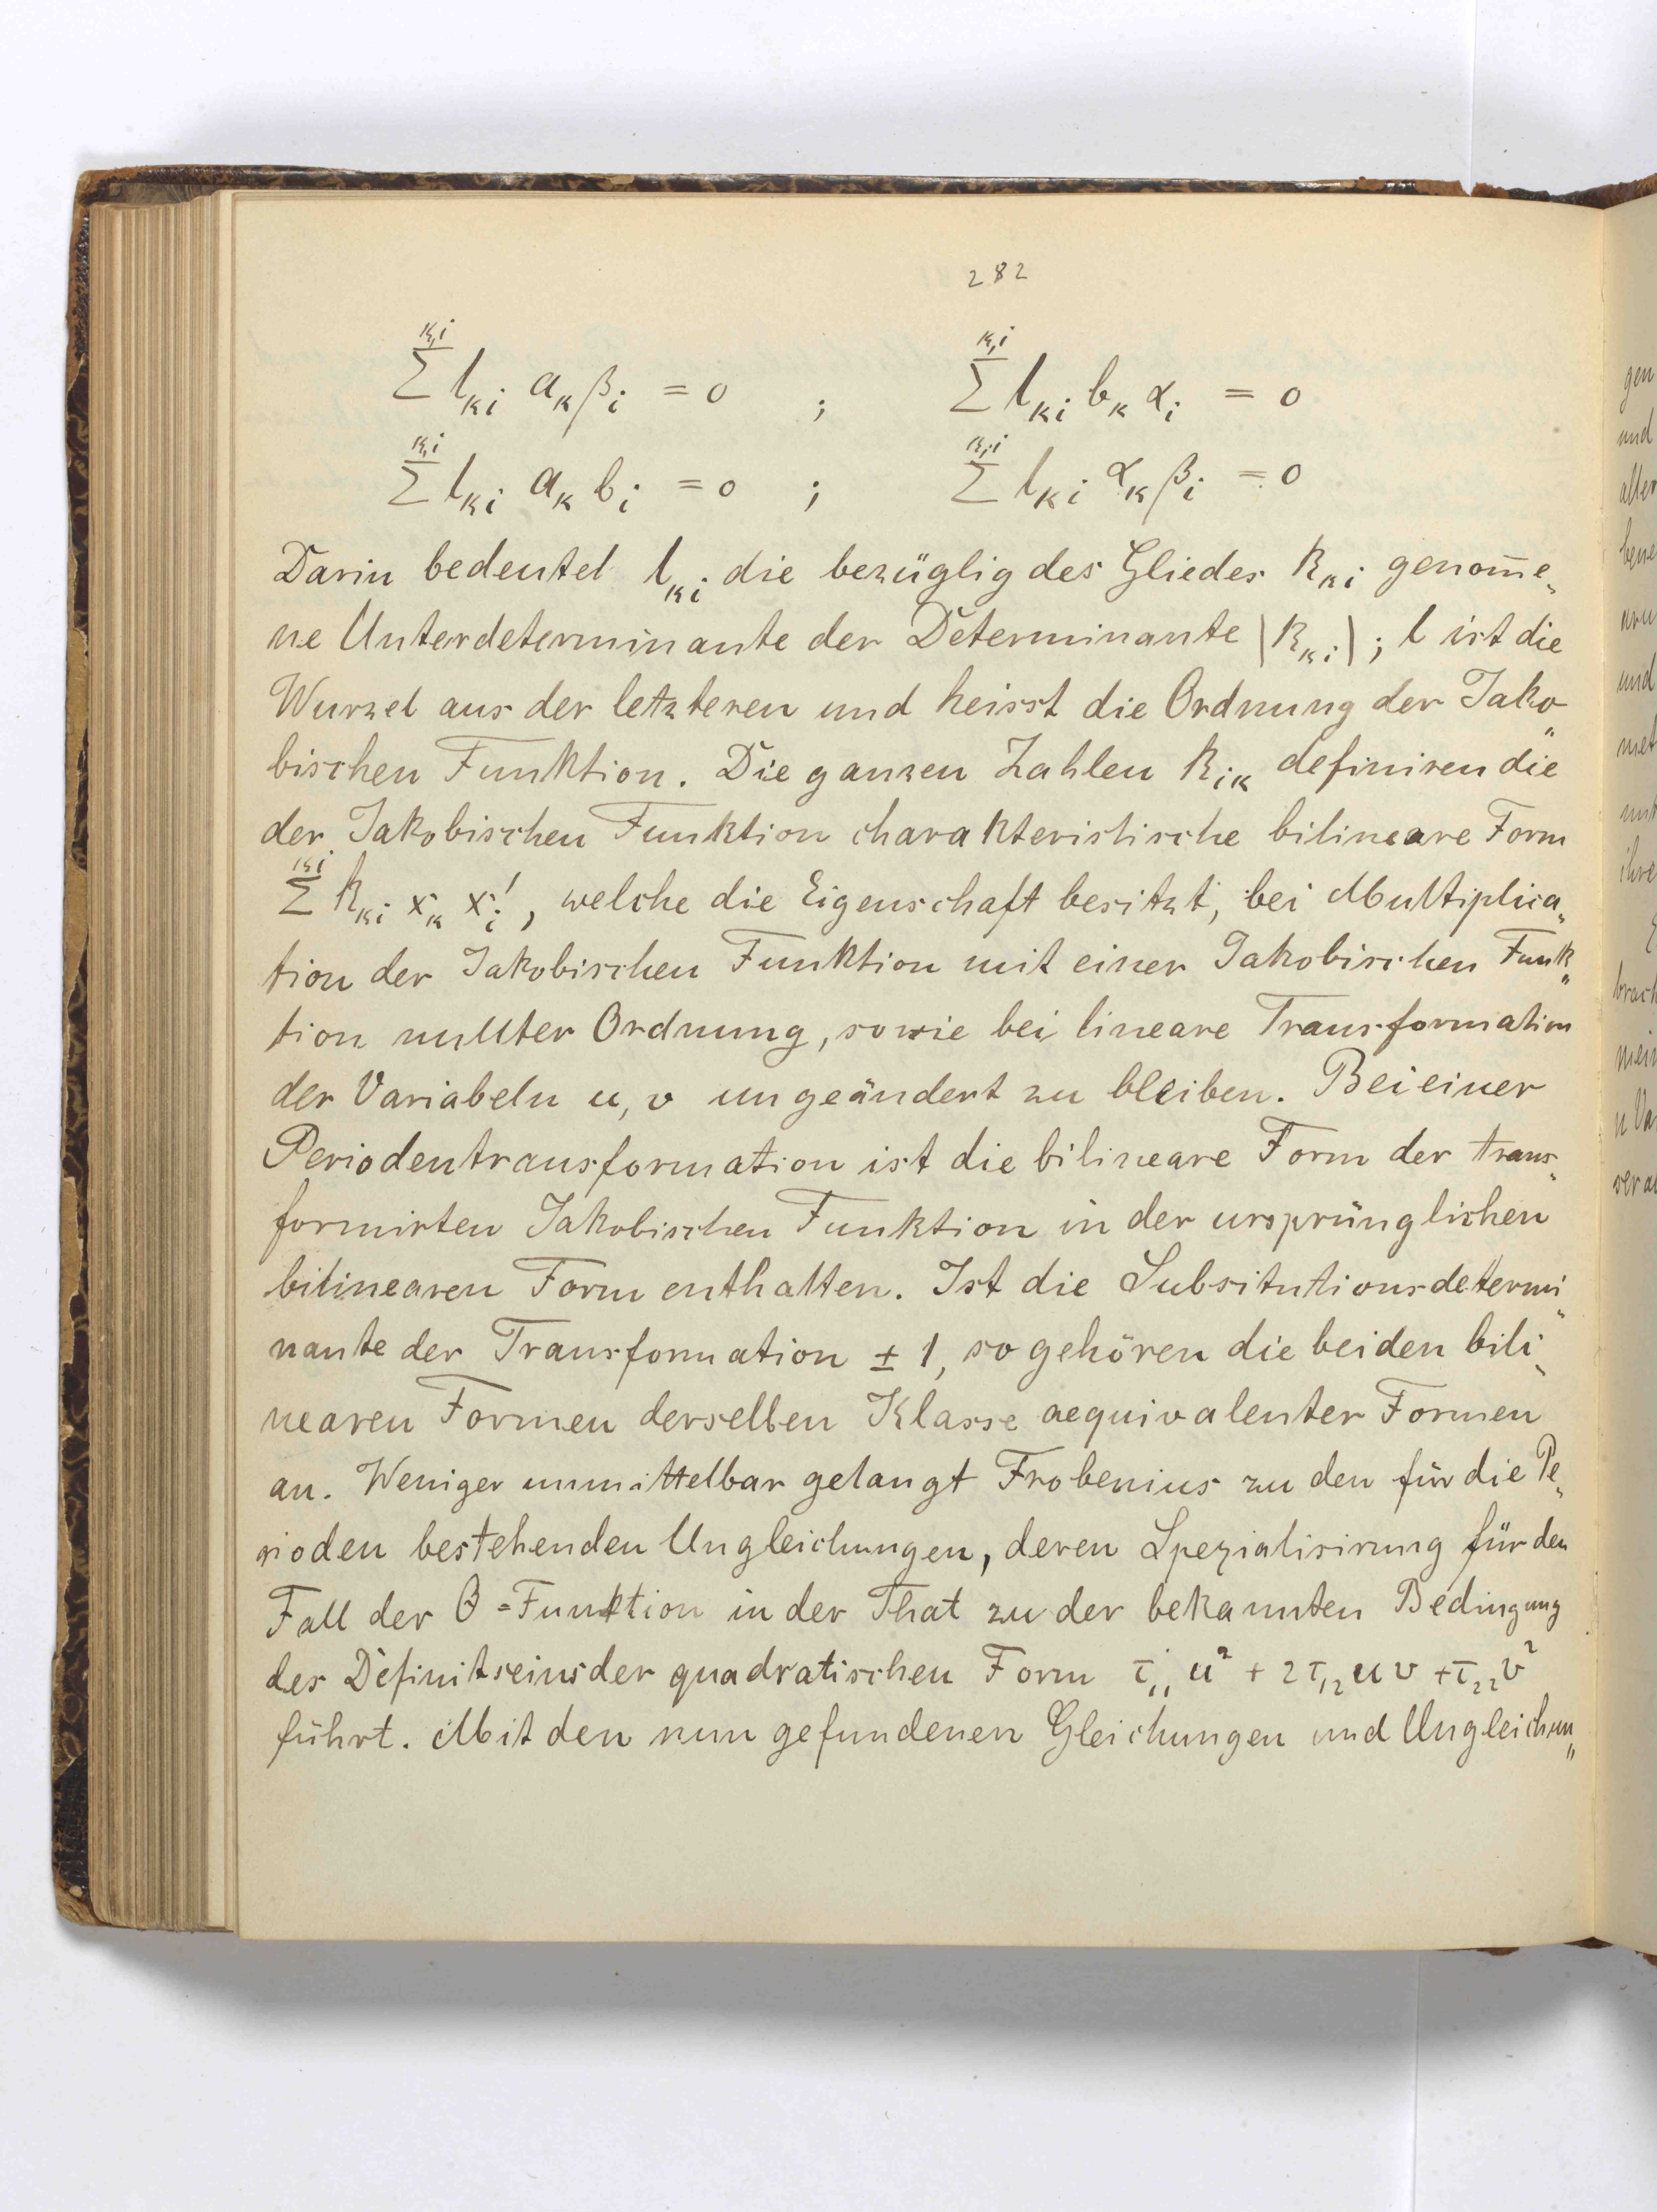 282
∑^{k,i} l_{ki} a_k β_i = 0 ; ∑^{k,i} l_{ki} b_k α_i = 0
∑^{k,i} l_{ki} a_k b_i = 0 ; ∑^{k,i} l_{ki} α_k β_i = 0
Darin bedeutet l_{ki} die bezüglig des Gliedes k_{ki} genom̅e„
ne Unterdeterminante der Determinante |k_{ki}|; l ist die
Wurzel aus der letzteren und heisst die Ordnung der Jako„
bischen Funktion. Die ganzen Zahlen k_{ik} definiren die
der Jakobischen Funktion charakteristische bilineare Form
∑^{ki} k_{ki} x_k x_i', welche die Eigenschaft besitzt, bei Multiplica„
tion der Jakobischen Funktion mit einer Jakobischen Funk„
tion nullter Ordnung, sowie bei lineare Transformation
der Variabeln u, v ungeändert zu bleiben. Bei einer
Periodentransformation ist die bilineare Form der trans„
formirten Jakobischen Funktion in der ursprünglichen
bilinearen Form enthalten. Ist die Subsitutionsdetermi„
nante der Transformation ± 1, so gehören die beiden bili„
nearen Formen derselben Klasse aequivalenter Formen
an. Weniger unmittelbar gelangt Frobenius zu den für die Pe„
rioden bestehenden Ungleichungen, deren Spezialisirung für den
Fall der Θ=Funktion in der That zu der bekannten Bedingung
des Definitseins der quadratischen Form τ_{11} u² + 2τ_{12} u v + τ_{22} v²
führt. Mit den nun gefundenen Gleichungen und Ungleichun„
gen
und
mit